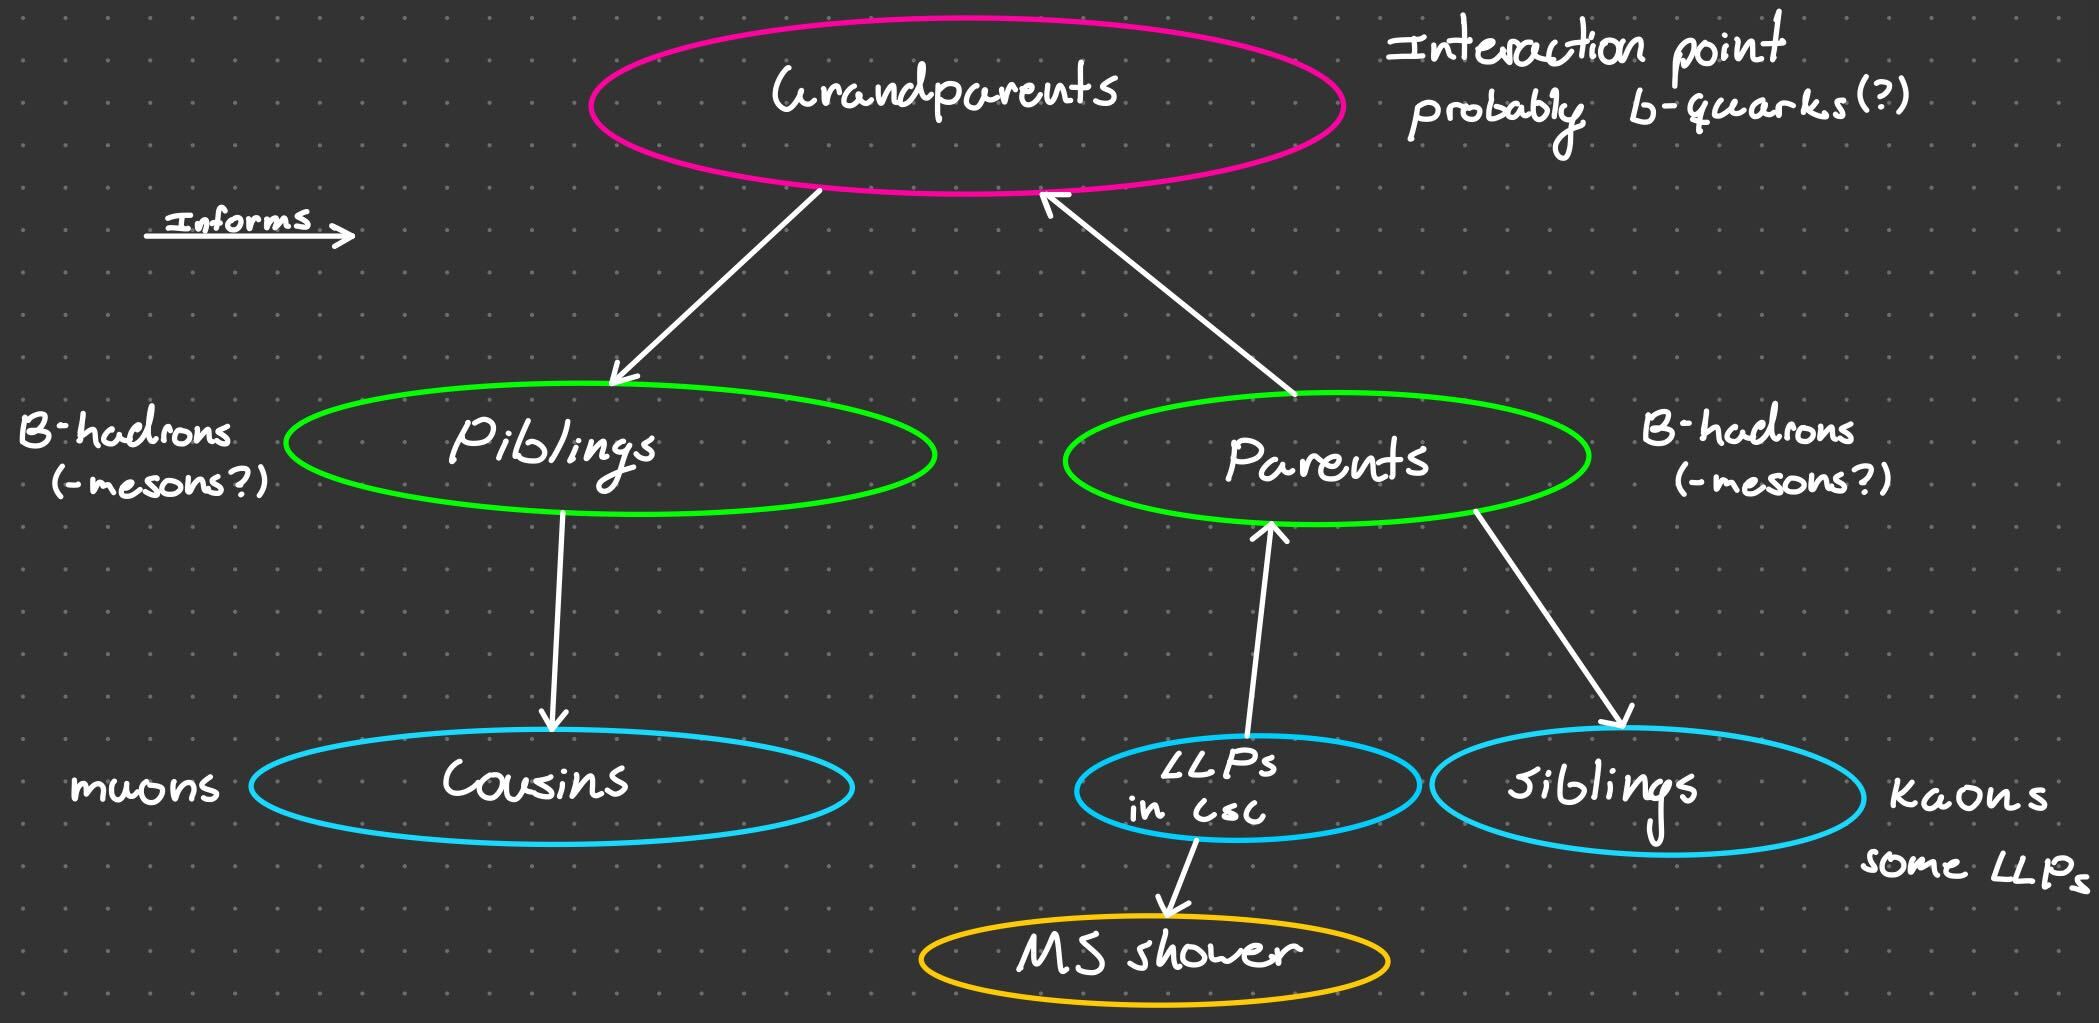 Grandparents
Interaction point
probably b-quarks(?)
Informs
B-hadrons
(-mesons?)
Piblings
Parents
B-hadrons
(-mesons?)
muons
Cousins
LLPs
in csc
Siblings
Kaons
some LLPs
MS shower